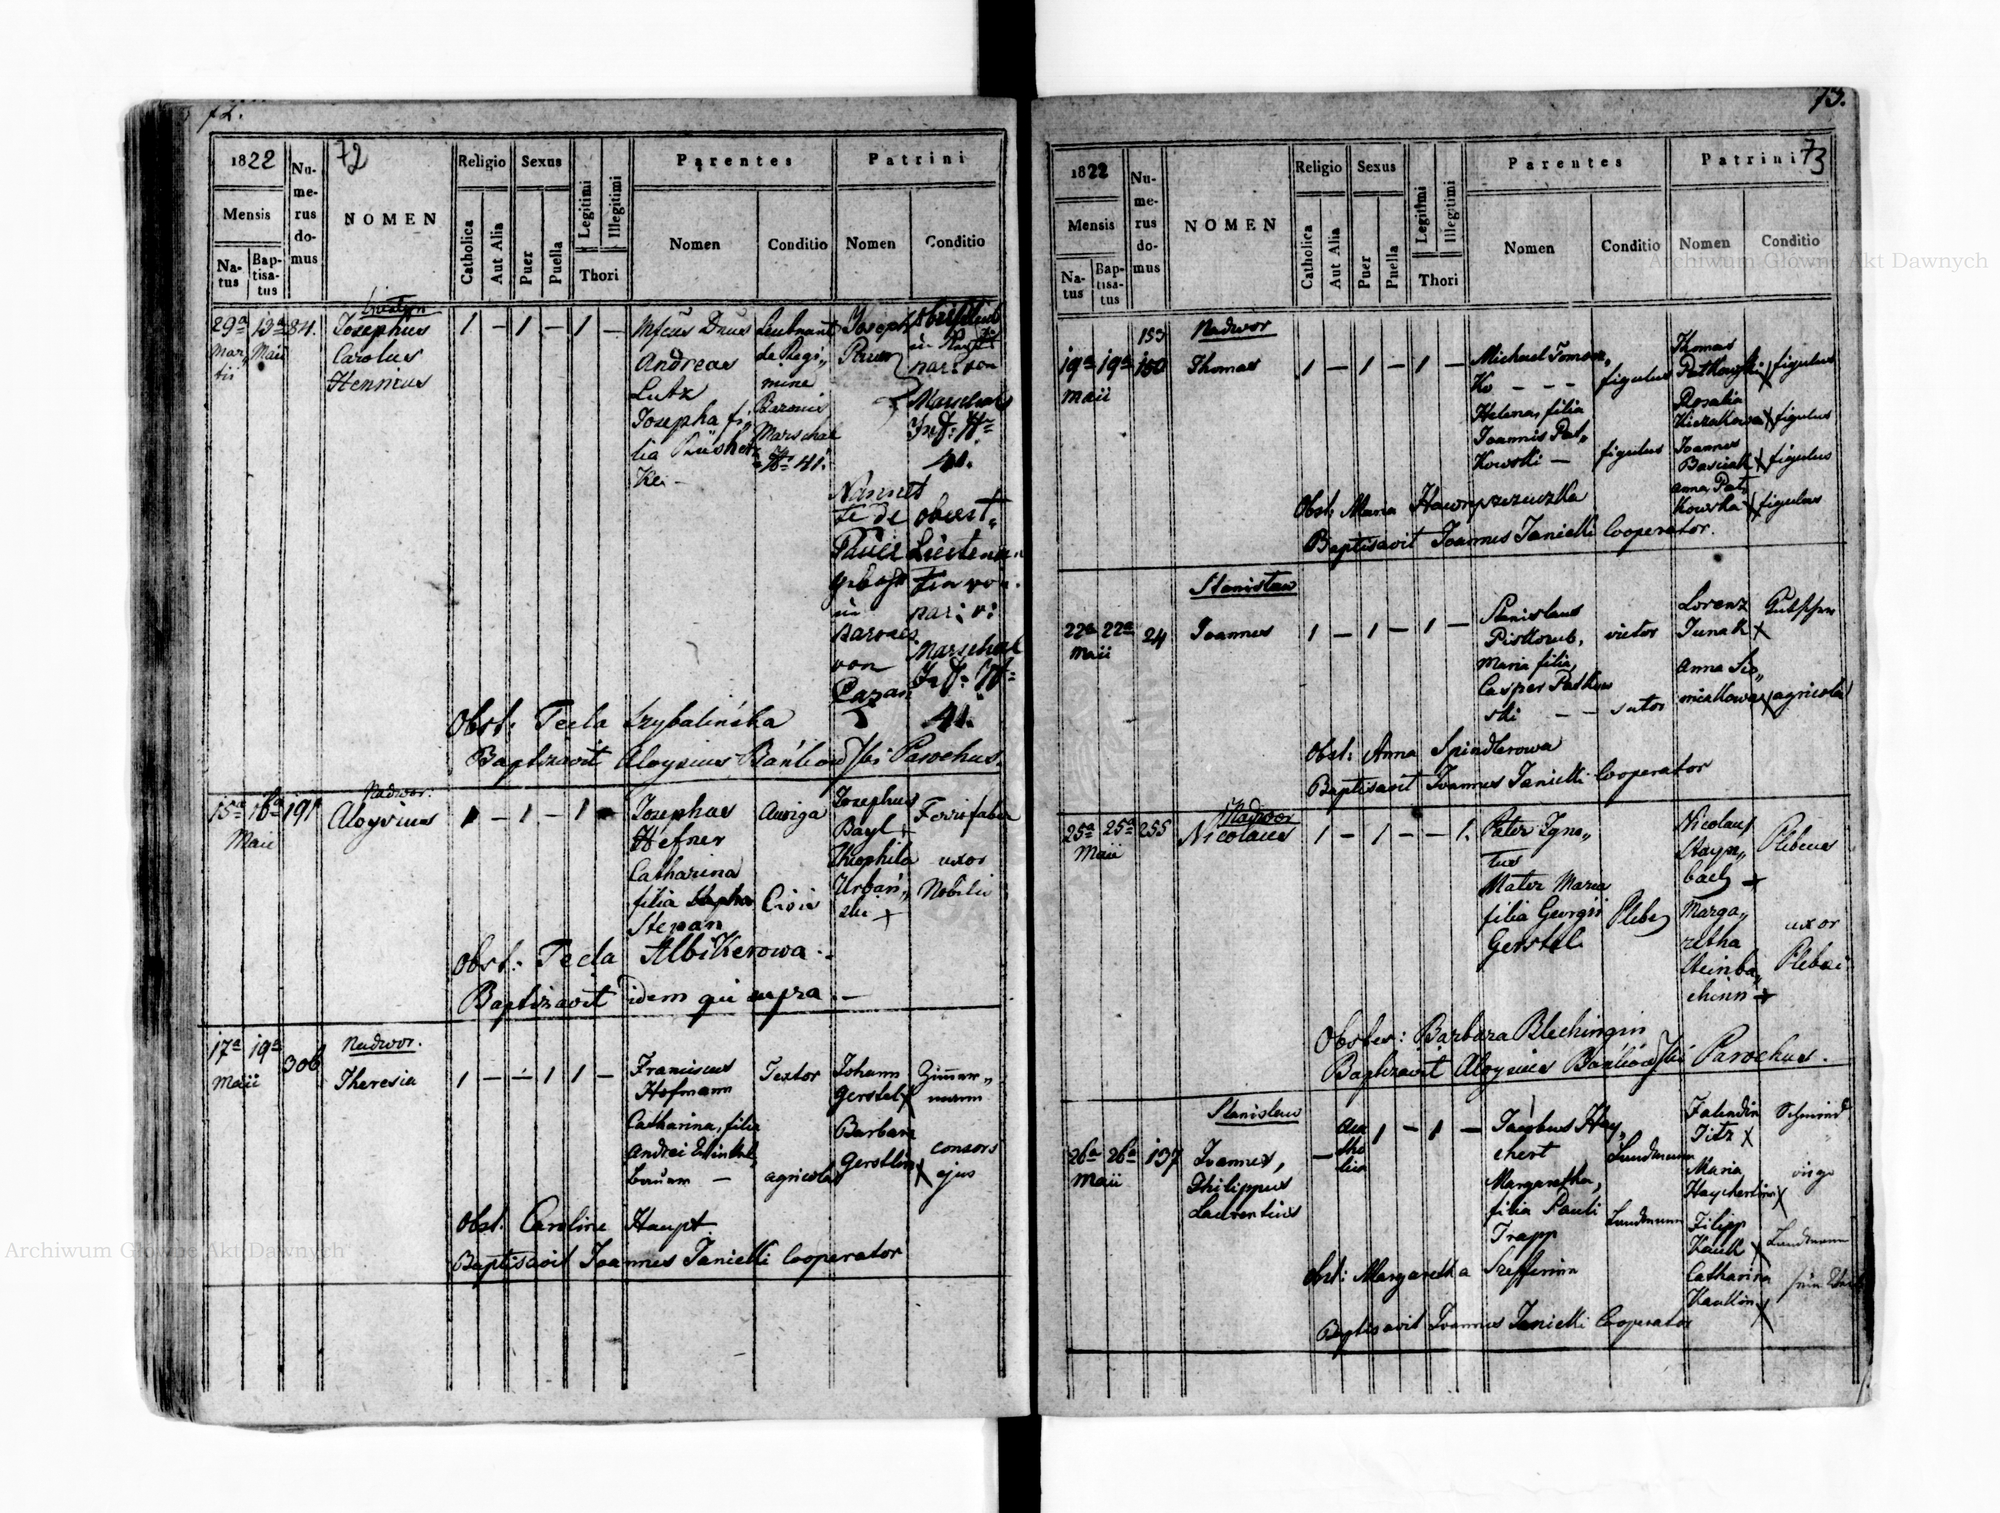 72.
1822
72
Mensis
Na-
tus
Bap-
tisa-
tus
Nu-
me-
rus
do-
mus
NOMEN
Religio
Catholica
Aut Alia
Sexus
Puer
Puella
Legitimi
Illegitimi
Thori
Parentes
Nomen
Conditio
Patrini
Nomen
Conditio
29a 13a 84.
Mar,
tii
Maii
Josephus
Carolus
Henricus
1 - 1 - 1 -
Andreas
Lutz
Josepha fi,,
lia
Leutnant
de Regi,,
mine
Baronis
Marschal
No 41.
Joseph
von
Marschal
Inf: No
41.
Nannet
te de
geborne
Baroness
von
Lieutenan
tin von
nar: v:
Marschal
Inf: No
41.
Obst: Tecla Szybalińska
Baptizavit Aloysius Parochus.
15a 16a 191
Maii
Nadwor.
Aloysius
1 - 1 - 1
Josephus
Hefner
Catharina
filia
Stepan
Auriga
Civis
Josephus
Bayl +
Theophila
Urbań,,
ski +
Ferrifaber
uxor
Nobilis
Obst: Tecla Albikerowa.
Baptizavit idem qui supra. -
17a 19a 306
Maii
Nadwor.
Theresia
1 - - 1 1 -
Franciscus
Hofmann
Catharina, filia
Andrei
Textor
agricola
Johann
Gerstel x
Barbara
Gerstlin x
Zimmer,,
mann
consors
ejus
Obst. Caroline Haupt
Baptisavit Joannes Janicki Cooperator
73.
1822
73
Mensis
Na-
tus
Bap-
tisa-
tus
Nu-
me-
rus
do-
mus
NOMEN
Religio
Catholica
Aut Alia
Sexus
Puer
Puella
Legitimi
Illegitimi
Thori
Parentes
Nomen
Conditio
Patrini
Nomen
Conditio
153
19a 19a 150
Maii
Nadwor
Thomas
1 - 1 - 1 -
Michael
Ko - - -
Helena, filia
Joannis Pat,,
kowski -
figulus
figulus
Thomas
Patkowski x figulus
Rosalia
x figulus
Joannes
Basiuk x figulus
Anna Pat,,
kowska x figulus
Obst: Maria
Baptisavit Joannes Janicki Cooperator.
22a 22a 24
Maii
Stanislaw
Joannes
1 - 1 - 1 -
Stanislaus
Piskozub,
Maria filia,
Casper Patkow
ski - -
vietor
sutor
Lorenz
Junak x
Anna
x agricola
Obst: Anna Spindlerowa
Baptisavit Joannes Janicki Cooperator
25a 25a 255
Maii
Nadwor
Nicolaus
1 - 1 - - 1.
Pater Igno,,
tus
Mater Maria
filia Georgii
Gerstel
Plebej
Nicolaus
Stayn,,
bach +
Marga,,
retha
Steinba,,
chinn +
Plebeus
uxor
Plebei.
Obstes: Barbara Blechingin
Baptizavit Aloysius Parochus.
26a 26a 137
Maii
Stanislaw
Joannes,
Philippus
Laurentius
- 1 - 1 -
Jacobus Hay,,
chert
Margaretha,
filia Pauli
Trapp
Landmann
Landmann
Falendin
Titz x
Maria
Haychertin x
Filipp
Kauk x
Catharina
Kaukin x
Schmind
virgo
Landmann
Obst: Margaretha
Baptisavit Joannes Janicki Cooperator
Archiwum Główne Akt Dawnych
Archiwum Główne Akt Dawnych